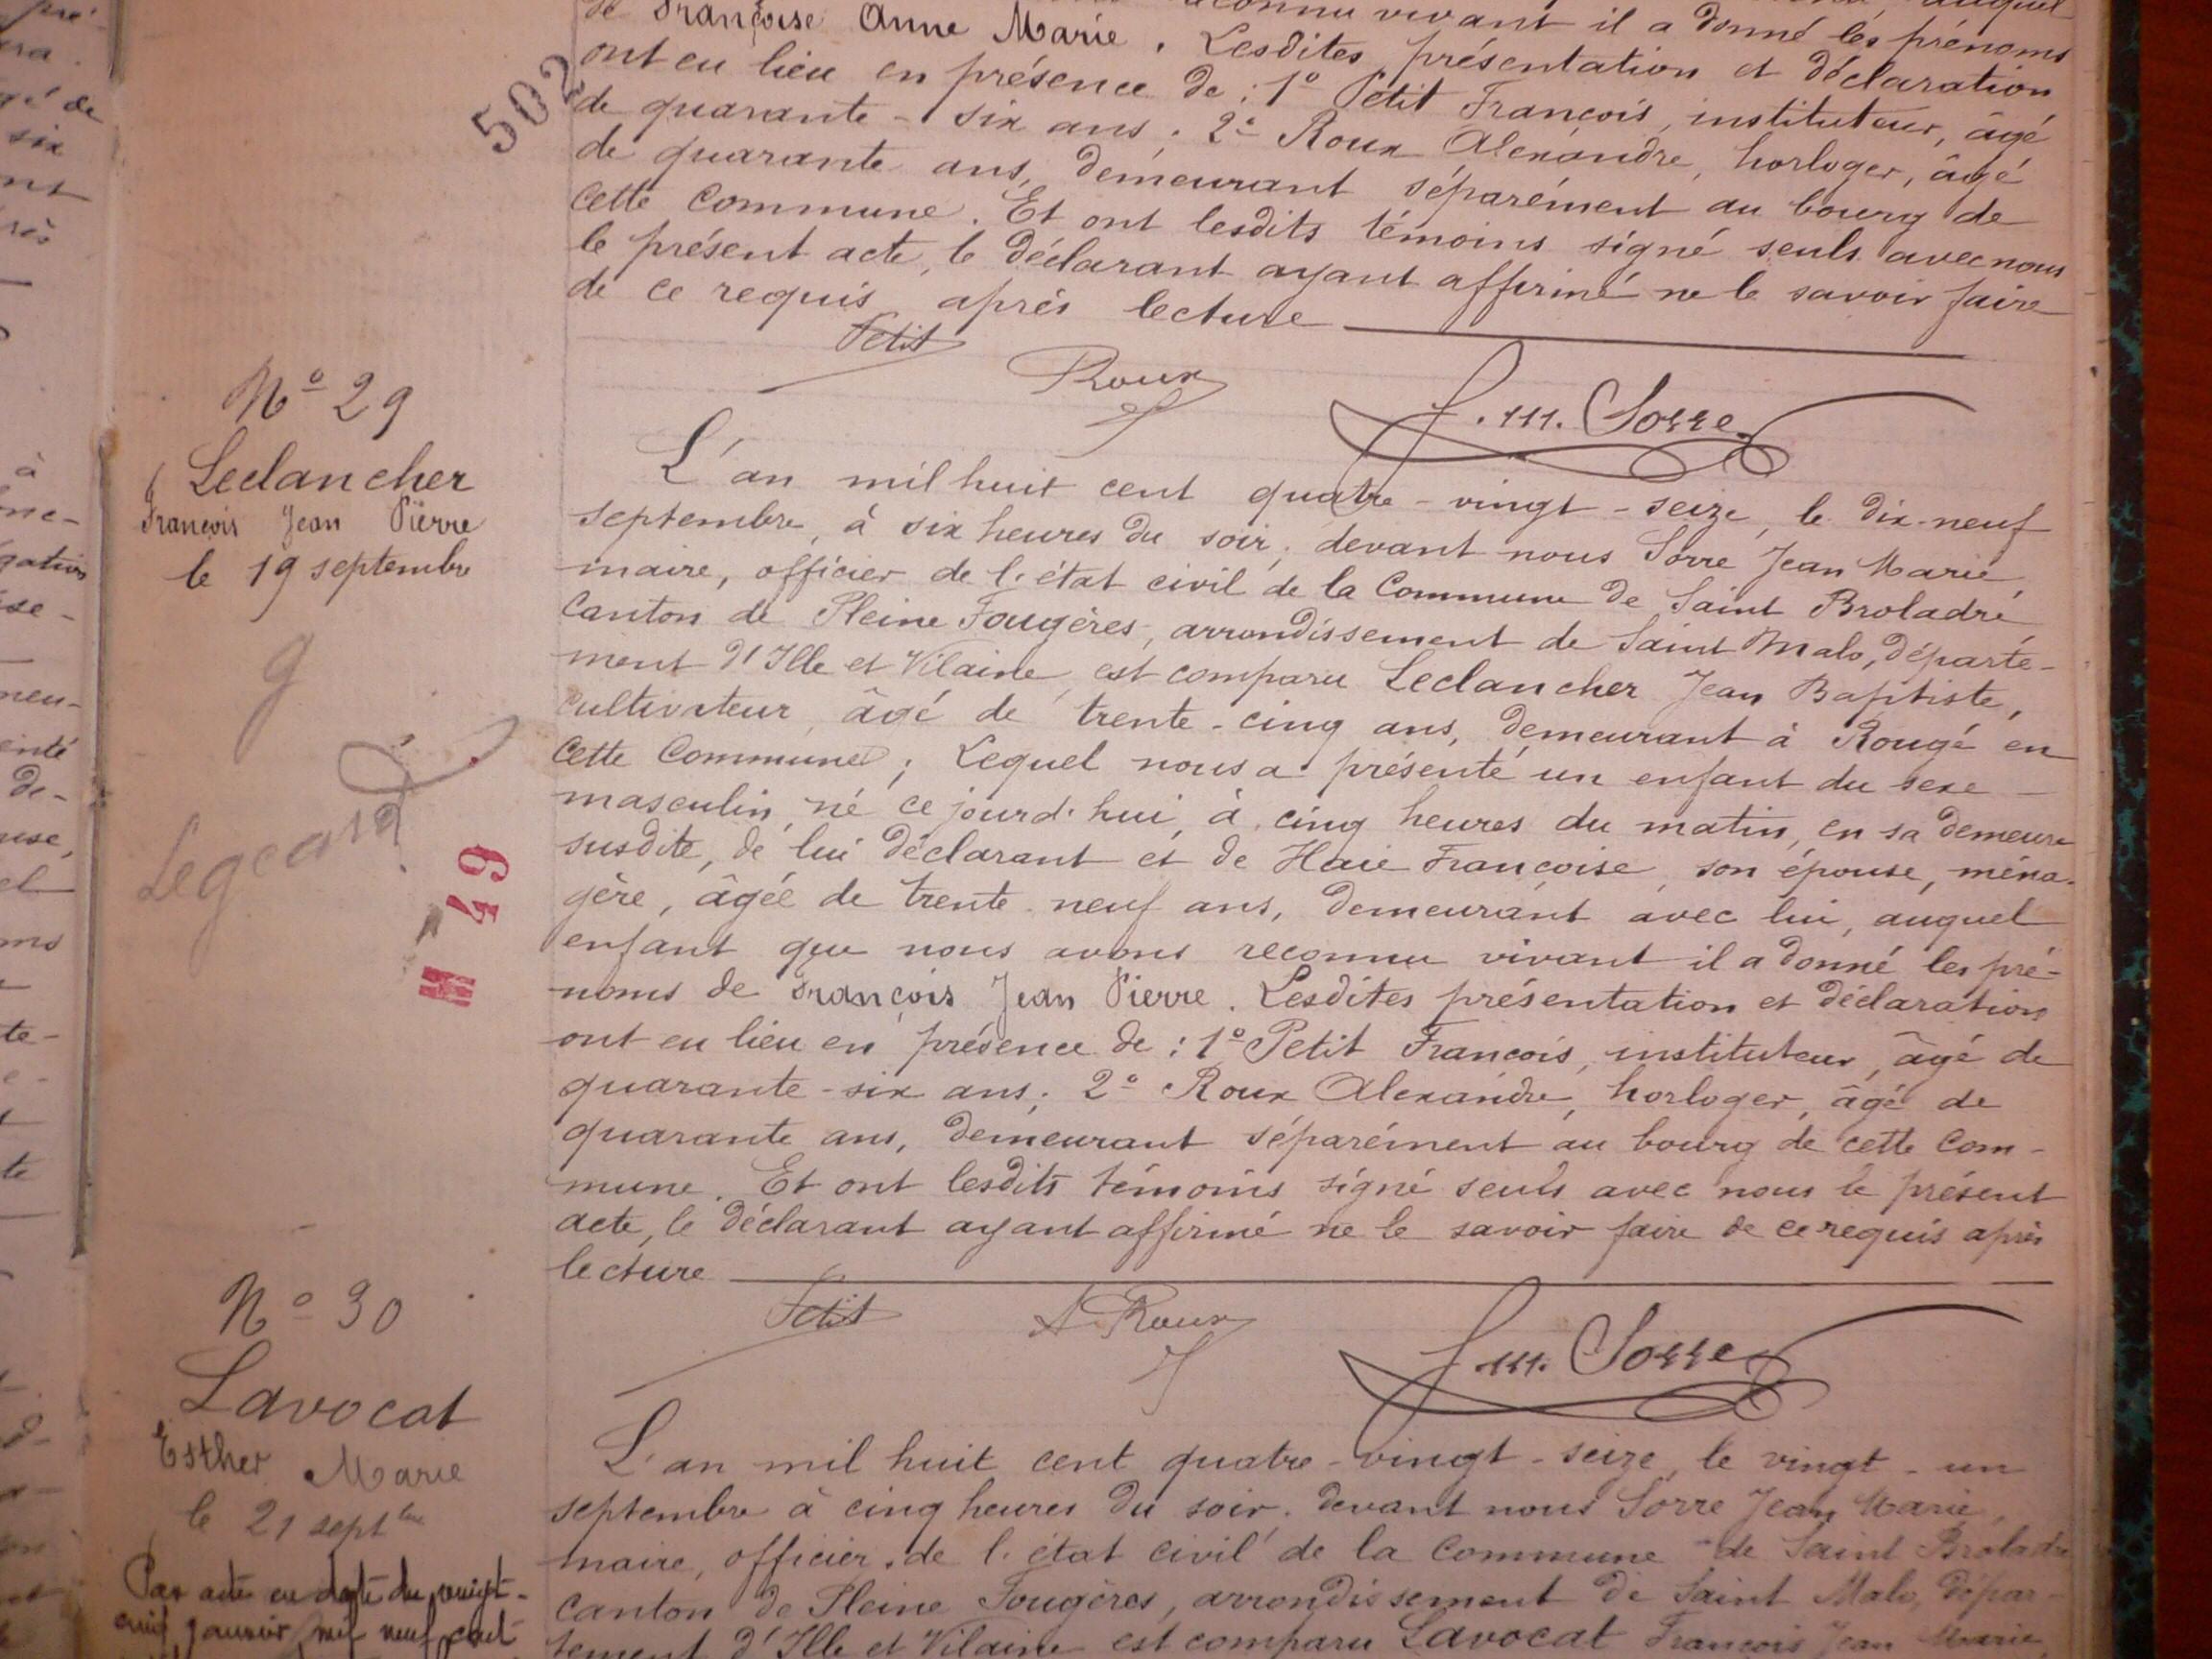 reconnu vivant il a donné les prénoms
de Françoise Anne Marie. Lesdites présentation et déclaration
ont eu lieu en présence de : 1° Petit François, instituteur, âgé
de quarante-six ans; 2° Roux Alexandre, horloger, âgé
de quarante ans, demeurant séparément au bourg de
cette Commune. Et ont lesdits témoins signé seuls avec nous
le présent acte, le déclarant ayant affirmé ne le savoir faire
de ce requis après lecture
502
Petit
Roux
J. m. Sorre
N° 29
Leclancher
François Jean Pierre
le 19 septembre
g
Legeard
H 49
L'an mil huit cent quatre-vingt-seize, le dix-neuf
septembre, à six heures du soir, devant nous Sorre Jean Marie,
maire, officier de l'état civil de la Commune de Saint Broladre
Canton de Pleine Fougères, arrondissement de Saint Malo, départe-
ment d'Ille et Vilaine, est comparu Leclancher Jean Baptiste,
cultivateur, âgé de trente-cinq ans, demeurant à Rougé en
cette Commune; Lequel nous a présenté un enfant du sexe
masculin, né ce jourd'hui, à cinq heures du matin, en sa demeure
susdite, de lui déclarant et de Haie Françoise, son épouse, ména-
gère, âgée de trente-neuf ans, demeurant avec lui, auquel
enfant que nous avons reconnu vivant il a donné les pré-
noms de François Jean Pierre. Lesdites présentation et déclaration
ont eu lieu en présence de : 1° Petit François, instituteur, âgé de
quarante-six ans; 2° Roux Alexandre, horloger, âgé de
quarante ans, demeurant séparément au bourg de cette Com-
mune. Et ont lesdits témoins signé seuls avec nous le présent
acte, le déclarant ayant affirmé ne le savoir faire de ce requis après
lecture
Petit
A. Roux
J. m. Sorre
N° 30
Lavocat
Esther Marie
le 21 sept bre
Par acte en date du vingt-
cinq janvier mil neuf cent
L'an mil huit cent quatre-vingt-seize, le vingt-un
septembre à cinq heures du soir, devant nous Sorre Jean Marie,
maire, officier de l'état civil de la Commune de Saint Broladre
canton de Pleine Fougères, arrondissement de Saint Malo, dépar-
tement d'Ille et Vilaine est comparu Lavocat François Jean Marie,